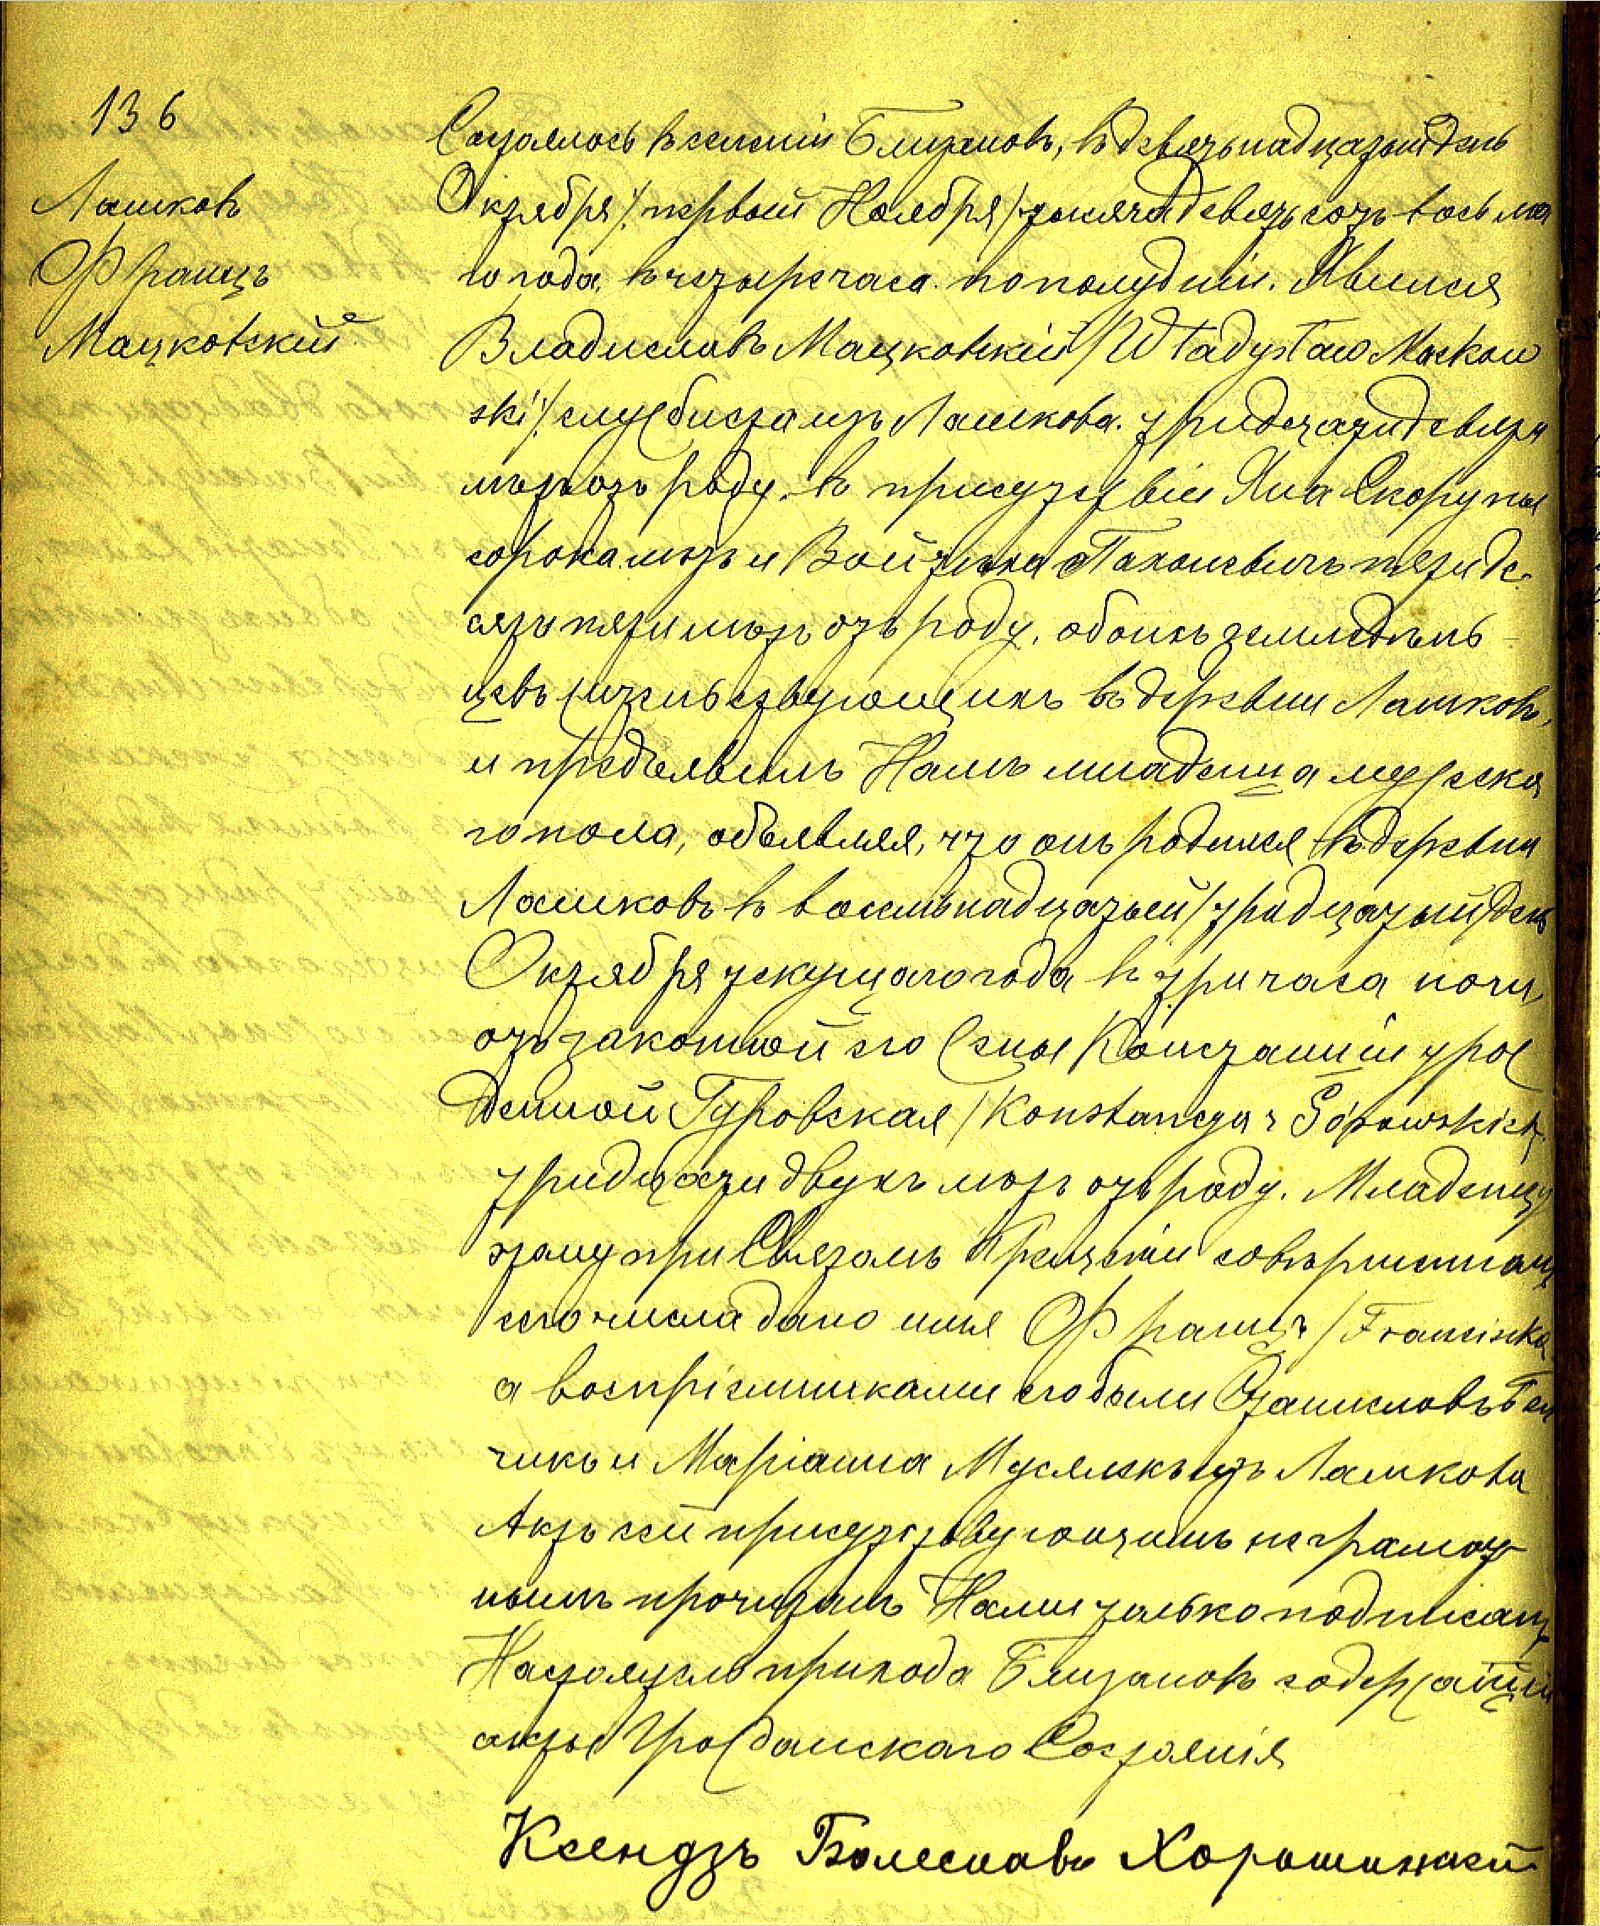 136
Лашковъ
Францъ
Мацковскій
Состоялось въ селеніи Близановъ, въ девятьнадцатый день
Октября /: первый Ноября / тысяча девятьсотъ восьма
го года, въ четыре часа по полудніи. Явился
Владиславъ Мацковскій / Władysław Mackow
ski /: служиста изъ Лашкова. тридцати девяти
лѣтъ отъ роду, въ присутствіи Яна Скорупы
сорока лѣтъ и Войтѣха пятиде-
сяти пяти лѣтъ отъ роду, обоихъ земледѣль-
цевъ жительствующихъ въ деревни Лашковъ,
и предъявилъ Намъ младенца мужска
го пола, объявляя, что онъ родился въ деревни
Лашковъ въ восемьнадцатый / тридцатый / день
Октября текущаго года въ три часа ночи,
отъ законной его жены Констанціи урож
денной Гуровская / Konstancya z Górowskich
тридцати двухъ лѣтъ отъ роду. Младенцу
этому при Святомъ Крещеніи совершенномъ
сего числа дано имя Францъ / Franciszka
а воспріемниками его были Станиславъ
чикъ и Маріанна изъ Лашкова
Актъ сей присутствующимъ неграмот
нымъ прочитанъ Нами только подписанъ
Настоятель прихода Близановъ содержащій
акты Гражданскаго Состоянія
Ксендзъ Болеславъ